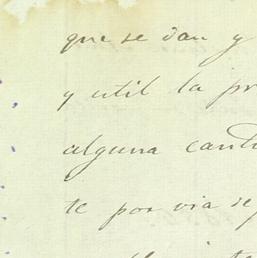 que se dan y
y util la pr
alguna canti
te por via se